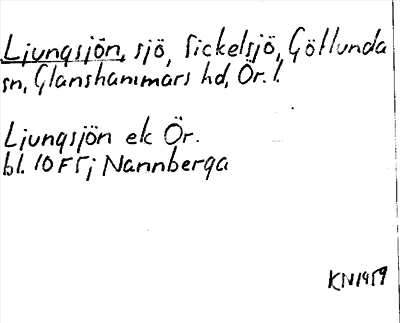 Ljungsjön, sjö, Sickelsjö, Götlunda
sn, Glanshammars hd, Ör. l.
Ljungsjön ek Ör.
bl. 10F5j Nannberga
KN1959